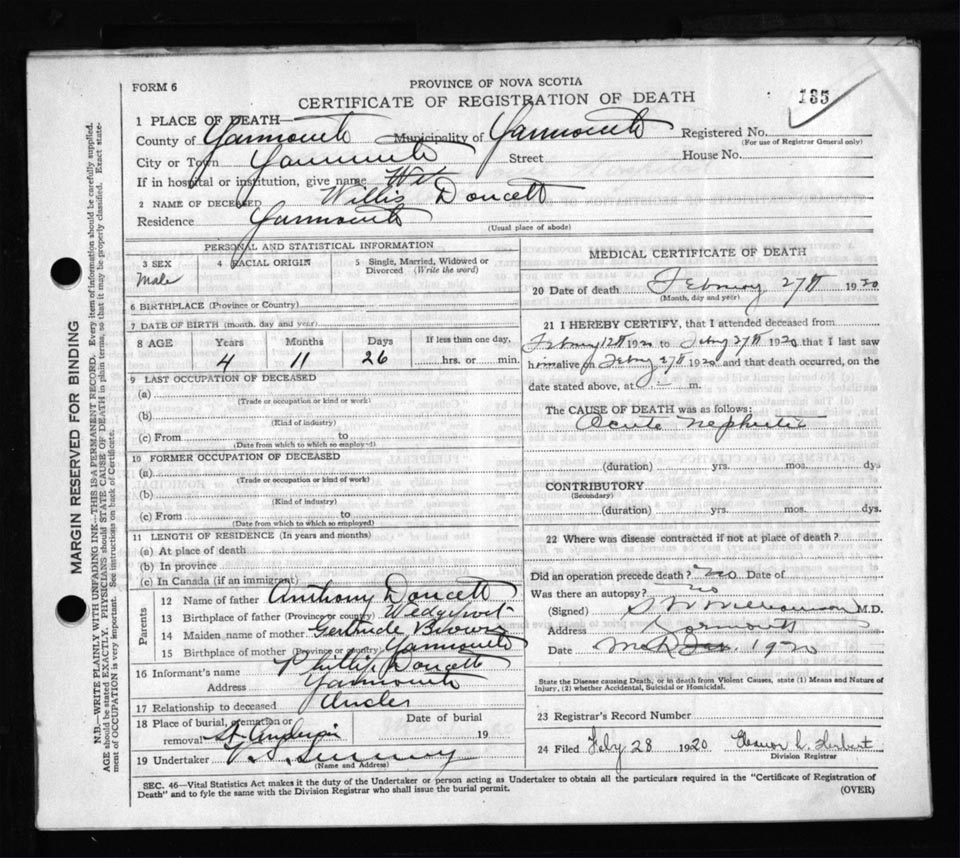 FORM 6
PROVINCE OF NOVA SCOTIA
CERTIFICATE OF REGISTRATION OF DEATH
135
1 PLACE OF DEATH—
County of Yarmouth Municipality of Yarmouth Registered No.
(For use of Registrar General only)
City or Town Yarmouth Street House No.
If in hospital or institution, give name
2 NAME OF DECEASED Willis Doucett
Residence Yarmouth
(Usual place of abode)
PERSONAL AND STATISTICAL INFORMATION
3 SEX
Male
4 RACIAL ORIGIN
5 Single, Married, Widowed or
Divorced (Write the word)
6 BIRTHPLACE (Province or Country)
7 DATE OF BIRTH (month, day and year)
8 AGE Years Months Days If less than one day,
4 11 26 hrs. or min.
9 LAST OCCUPATION OF DECEASED
(a)
(Trade or occupation or kind or work)
(b)
(Kind of industry)
(c) From to
(Date from which to which so employed)
10 FORMER OCCUPATION OF DECEASED
(a)
(Trade or occupation or kind of work)
(b)
(Kind of industry)
(c) From to
(Date from which to which so employed)
11 LENGTH OF RESIDENCE (In years and months)
(a) At place of death
(b) In province
(c) In Canada (if an immigrant)
Parents
12 Name of father Anthony Doucett
13 Birthplace of father (Province or country)
14 Maiden name of mother Gertrude Brown
15 Birthplace of mother (Province or country) Yarmouth
16 Informant's name Phillip Doucett
Address Yarmouth
17 Relationship to deceased Uncle
18 Place of burial, cremation or
removal
Date of burial
19
19 Undertaker
(Name and Address)
MEDICAL CERTIFICATE OF DEATH
20 Date of death February 27th 1920
(Month, day and year)
21 I HEREBY CERTIFY, that I attended deceased from
1920 to Feby 27th 1920 that I last saw
him alive on Feby 27th 1920 and that death occurred, on the
date stated above, at — m.
The CAUSE OF DEATH was as follows:
Acute nephritis
(duration) yrs. mos. dys
CONTRIBUTORY
(Secondary)
(duration) yrs. mos. dys.
22 Where was disease contracted if not at place of death?
Did an operation precede death? no Date of
Was there an autopsy? no
(Signed) M.D.
Address Yarmouth
Date 1920
State the Disease causing Death, or in death from Violent Causes, state (1) Means and Nature of
Injury, (2) whether Accidental, Suicidal or Homicidal.
23 Registrar's Record Number
24 Filed Feby 28 1920
Division Registrar
SEC. 46—Vital Statistics Act makes it the duty of the Undertaker or person acting as Undertaker to obtain all the particulars required in the "Certificate of Registration of
Death" and to fyle the same with the Division Registrar who shall issue the burial permit. (OVER)
MARGIN RESERVED FOR BINDING
N.B.—WRITE PLAINLY WITH UNFADING INK—THIS IS A PERMANENT RECORD. Every item of information should be carefully supplied.
AGE should be stated EXACTLY. PHYSICIANS should STATE CAUSE OF DEATH in plain terms, so that it may be properly classified. Exact state-
ment of OCCUPATION is very important. See instructions on back of Certificate.